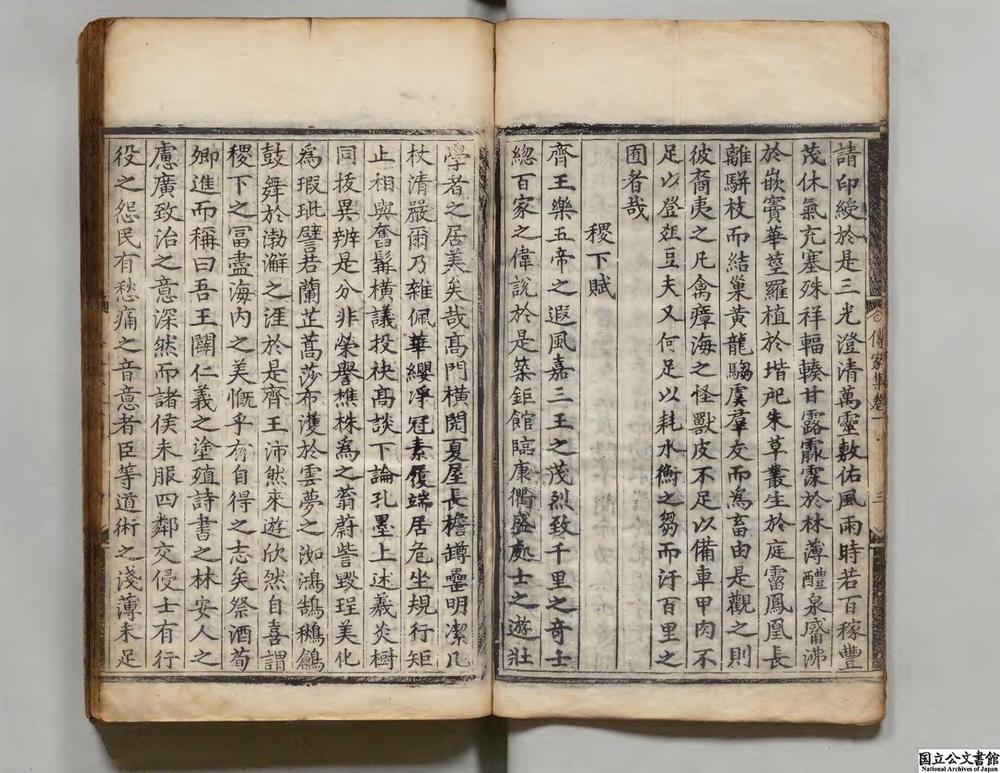 請印綬於是三光澄清萬靈敷佑風雨時若百稼豐
茂休氣充塞殊祥輻輳甘露霡霂於林薄醴泉觱沸
於嵌竇華莖羅植於堦戺朱草叢生於庭霤鳳凰長
離駢枝而結巢黃龍騶虞羣友而為畜由是觀之則
彼裔夷之凡禽瘴海之怪獸皮不足以備車甲肉不
足以登俎豆夫又何足以耗水衡之芻而汙百里之
囿者哉
稷下賦
齊王樂五帝之遐風嘉三王之茂烈致千里之奇士
緫百家之偉說於是築鉅館臨康衢盛處士之遊壯
學者之居美矣哉髙門橫閌夏屋長檐罇罍明潔几
杖清嚴爾乃雜佩華纓淨冠素履端居危坐規行矩
止相與奮髯橫議投袂髙談下論孔墨上述羲炎樹
同拔異辨是分非榮譽樵株為之蓊蔚訾毀珵美化
為瑕玼譬若蘭芷蒿莎布濩於雲夢之沏鴻鵠鶖鶬
鼓舞於渤澥之涯於是齊王沛然來遊欣然自喜謂
稷下之冨盡海內之美慨乎有自得之志矣祭酒荀
卿進而稱曰吾王闢仁義之塗殖詩書之林安人之
慮廣致治之意深然而諸侯未服四鄰交侵士有行
役之怨民有愁痛之音意者臣等道術之淺薄未足
傳家集卷一
三
国立公文書館
National Archives of Japan